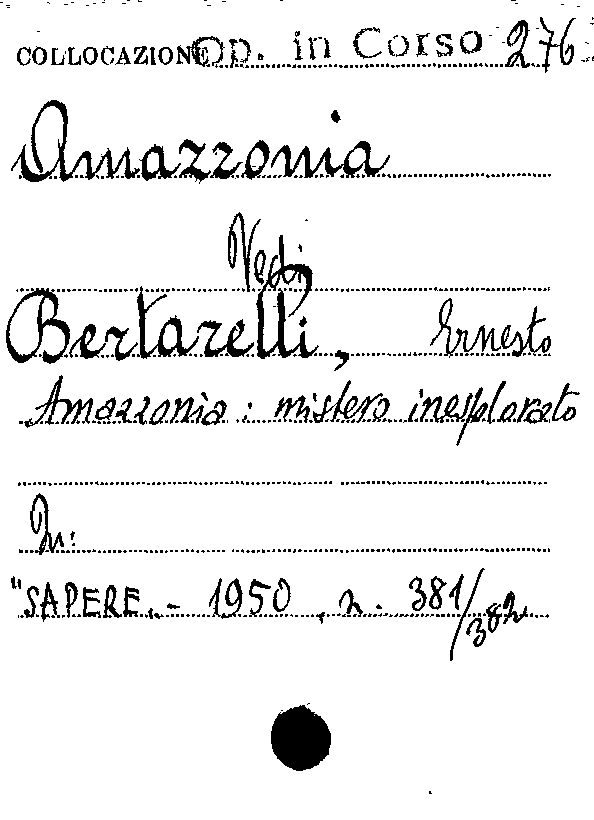 COLLOCAZIONE Op. in Corso 276
Amazzonia
Vedi
Bertarelli, Ernesto
Amazzonia: mistero inesplorato
In:
"SAPERE". - 1950, n. 381/382